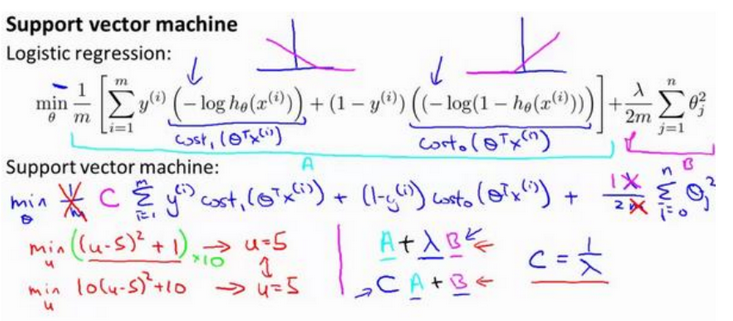 Support vector machine
Logistic regression:
min_θ 1/m [ ∑_{i=1}^{m} y^{(i)} (− log h_θ(x^{(i)})) + (1 − y^{(i)}) ((− log(1 − h_θ(x^{(i)}))) ] + λ/2m ∑_{j=1}^{n} θ_j^2
cost₁(θᵀx^{(i)}) cost₀(θᵀx^{(i)})
A B
Support vector machine:
min_θ 1/m C ∑_{i=1}^{m} y^{(i)} cost₁(θᵀx^{(i)}) + (1-y^{(i)}) cost₀(θᵀx^{(i)}) + 1 λ/2m ∑_{i=0}^{n} θ_j^2
min_u ((u-5)² + 1) ×10 → u=5 A + λB ←
min_u 10(u-5)²+10 → u=5 → CA + B ← C = 1/λ